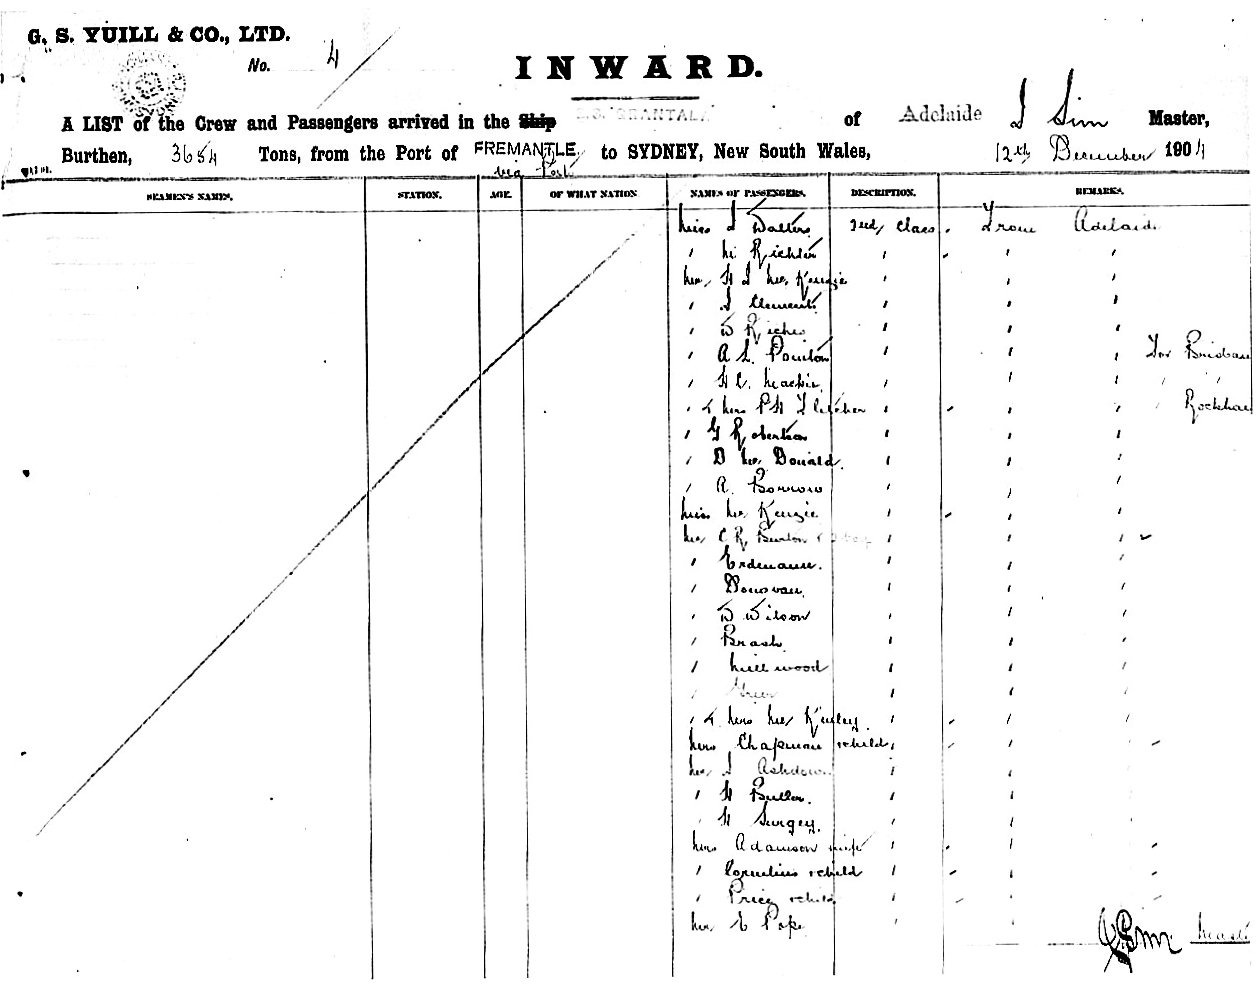 G. S. YUILL & CO., LTD.
No. 4
INWARD.
A LIST of the Crew and Passengers arrived in the Ship S.S. GRANTALA of Adelaide J Sim Master,
Burthen, 3654 Tons, from the Port of FREMANTLE to SYDNEY, New South Wales, 12th December 1904
via Ports
SEAMEN'S NAMES. STATION. AGE. OF WHAT NATION NAMES OF PASSENGERS. DESCRIPTION. REMARKS.
Miss J Walters 2nd Class. From Adelaide
" M Richter " " "
Mr H J McKenzie " " "
" J Clements " " "
" W Riches " " "
" A L Poulton " " " For Brisban
" H C Mackie " " " " "
" & Mrs P H Fletcher " " " " Rockham
" G Robertson " " "
" D McDonald " " "
" A. Borrow " " "
Miss McKenzie " " "
Mr C R Burton & " " "
" " " "
" Donovan " " "
" W Wilson " " "
" Brash " " "
" Millwood " " "
" " " "
" & Mrs McKinley " " "
Mrs Chapman & child " " "
Mr J Ashdown " " "
" H Butler " " "
" H Surgey " " "
Mrs Adamson & inf " " "
" Cornelius & child " " "
" Price & child " " "
Mr E Pope " "
J Sim Mast